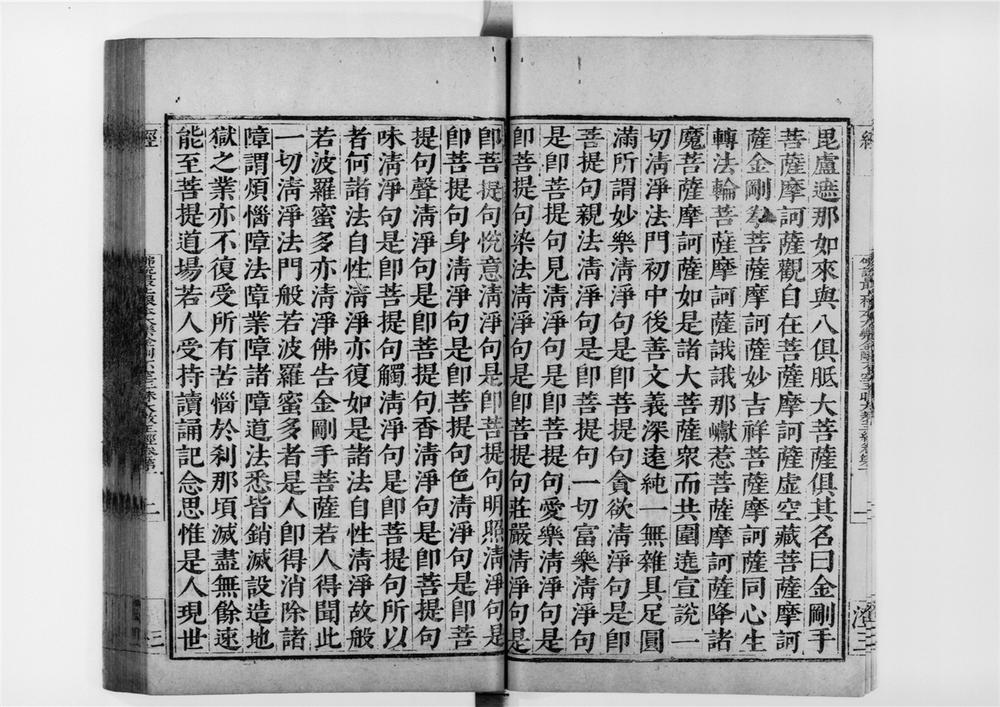 毘盧遮那如來與八俱胝大菩薩俱其名曰金剛手
菩薩摩訶薩觀自在菩薩摩訶薩虛空藏菩薩摩訶
薩金剛拳菩薩摩訶薩妙吉祥菩薩摩訶薩同心生
轉法輪菩薩摩訶薩誐誐那巘惹菩薩摩訶薩降諸
魔菩薩摩訶薩如是諸大菩薩衆而共圍遶宣說一
切清淨法門初中後善文義深遠純一無雜具足圓
滿所謂妙樂清淨句是卽菩提句貪欲清淨句是卽
菩提句親法清淨句是卽菩提句一切富樂清淨句
是卽菩提句見清淨句是卽菩提句愛樂清淨句是
卽菩提句染法清淨句是卽菩提句莊嚴清淨句是
卽菩提句悅意清淨句是卽菩提句明照清淨句是
卽菩提句身清淨句是卽菩提句色清淨句是卽菩
提句聲清淨句是卽菩提句香清淨句是卽菩提句
味清淨句是卽菩提句觸清淨句是卽菩提句所以
者何諸法自性清淨亦復如是諸法自性清淨故般
若波羅蜜多亦清淨佛告金剛手菩薩若人得聞此
一切清淨法門般若波羅蜜多者是人卽得消除諸
障謂煩惱障法障業障諸障道法悉皆銷滅設造地
獄之業亦不復受所有苦惱於刹那頃滅盡無餘速
能至菩提道場若人受持讀誦記念思惟是人現世
經
二
三